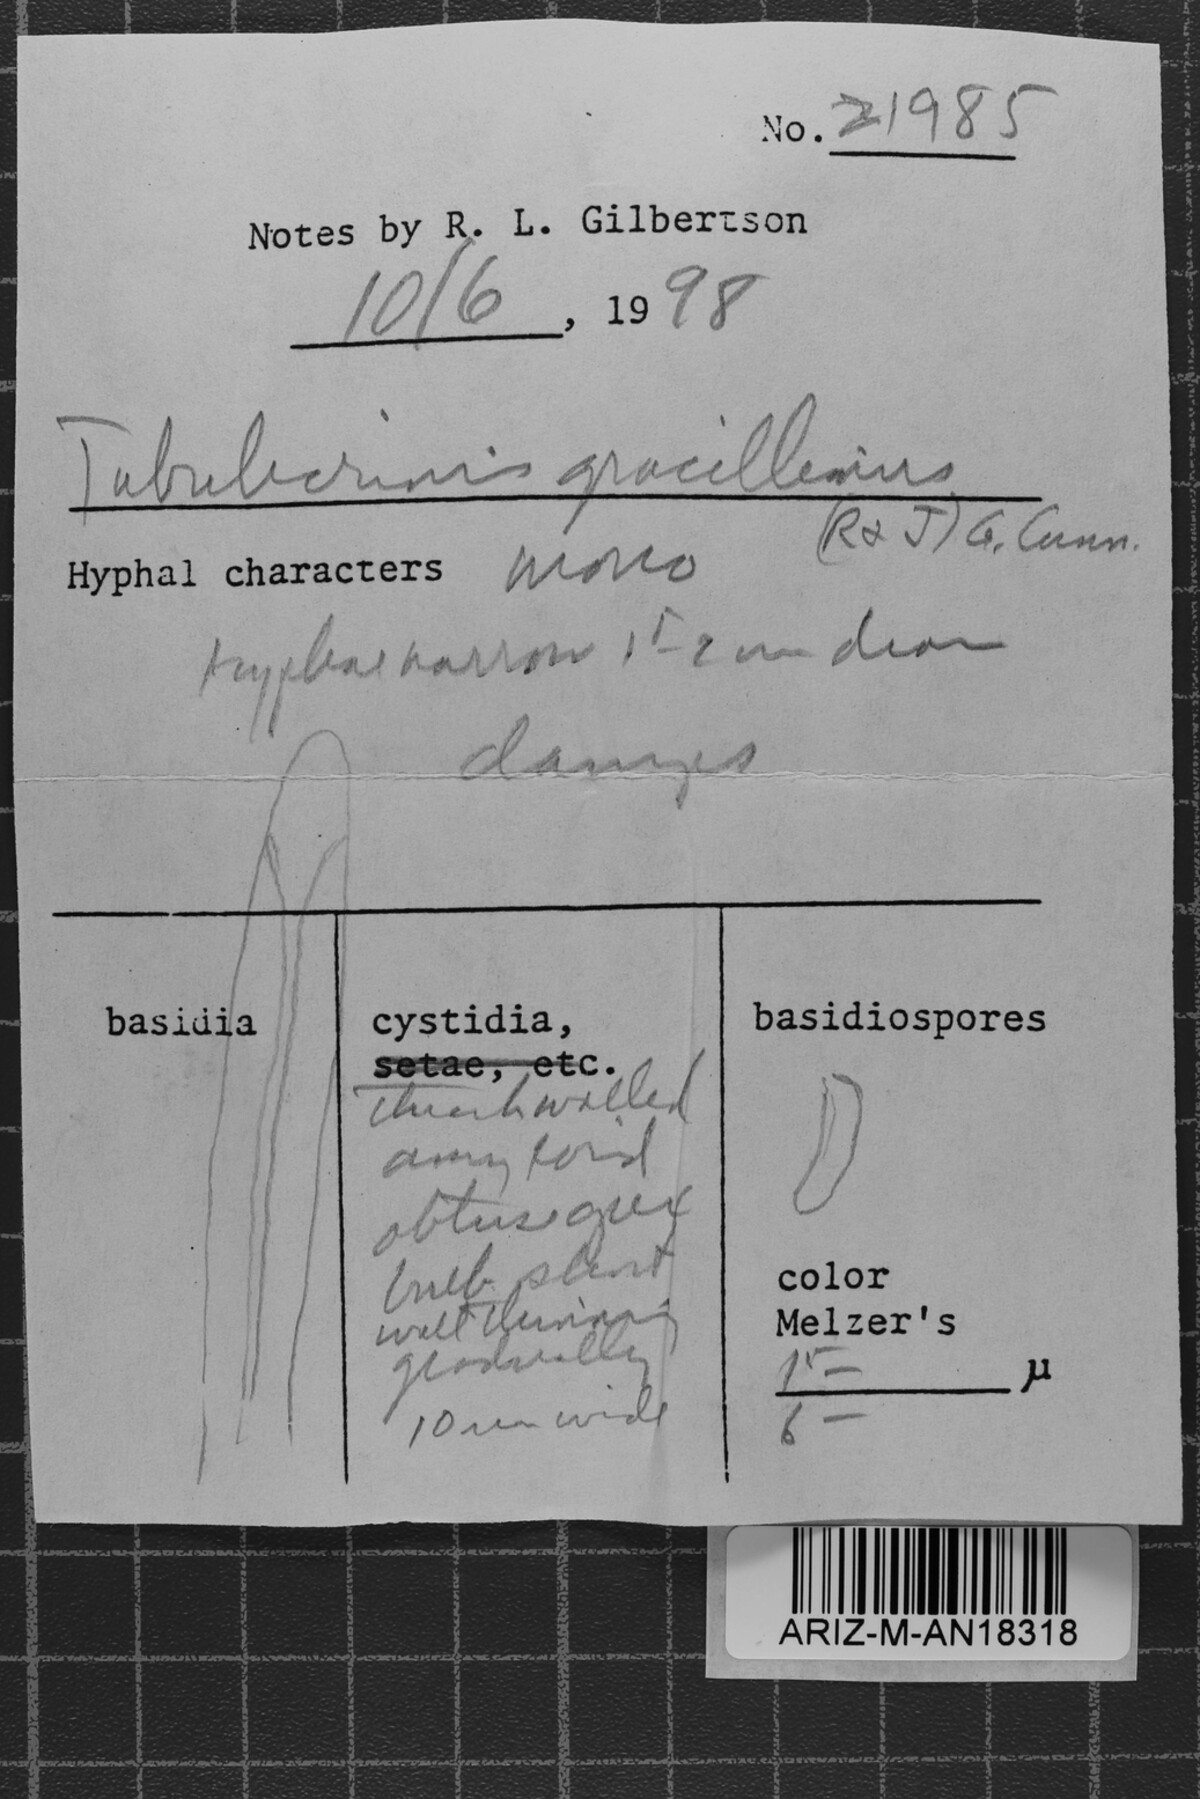 No. 21985
Notes by R. L. Gilbertson
10/6, 1998
Tubulicrinis gracillimus
(R & J) G. Cunn.
Hyphal characters mono
hyphae narrow 1.5-2 um diam
basidia
cystidia,
setae, etc.
walled
amyloid
obtuse apex
wall thinning
gradually
10 um wide
basidiospores
color
Melzer's
µ
6 –
ARIZ-M-AN18318